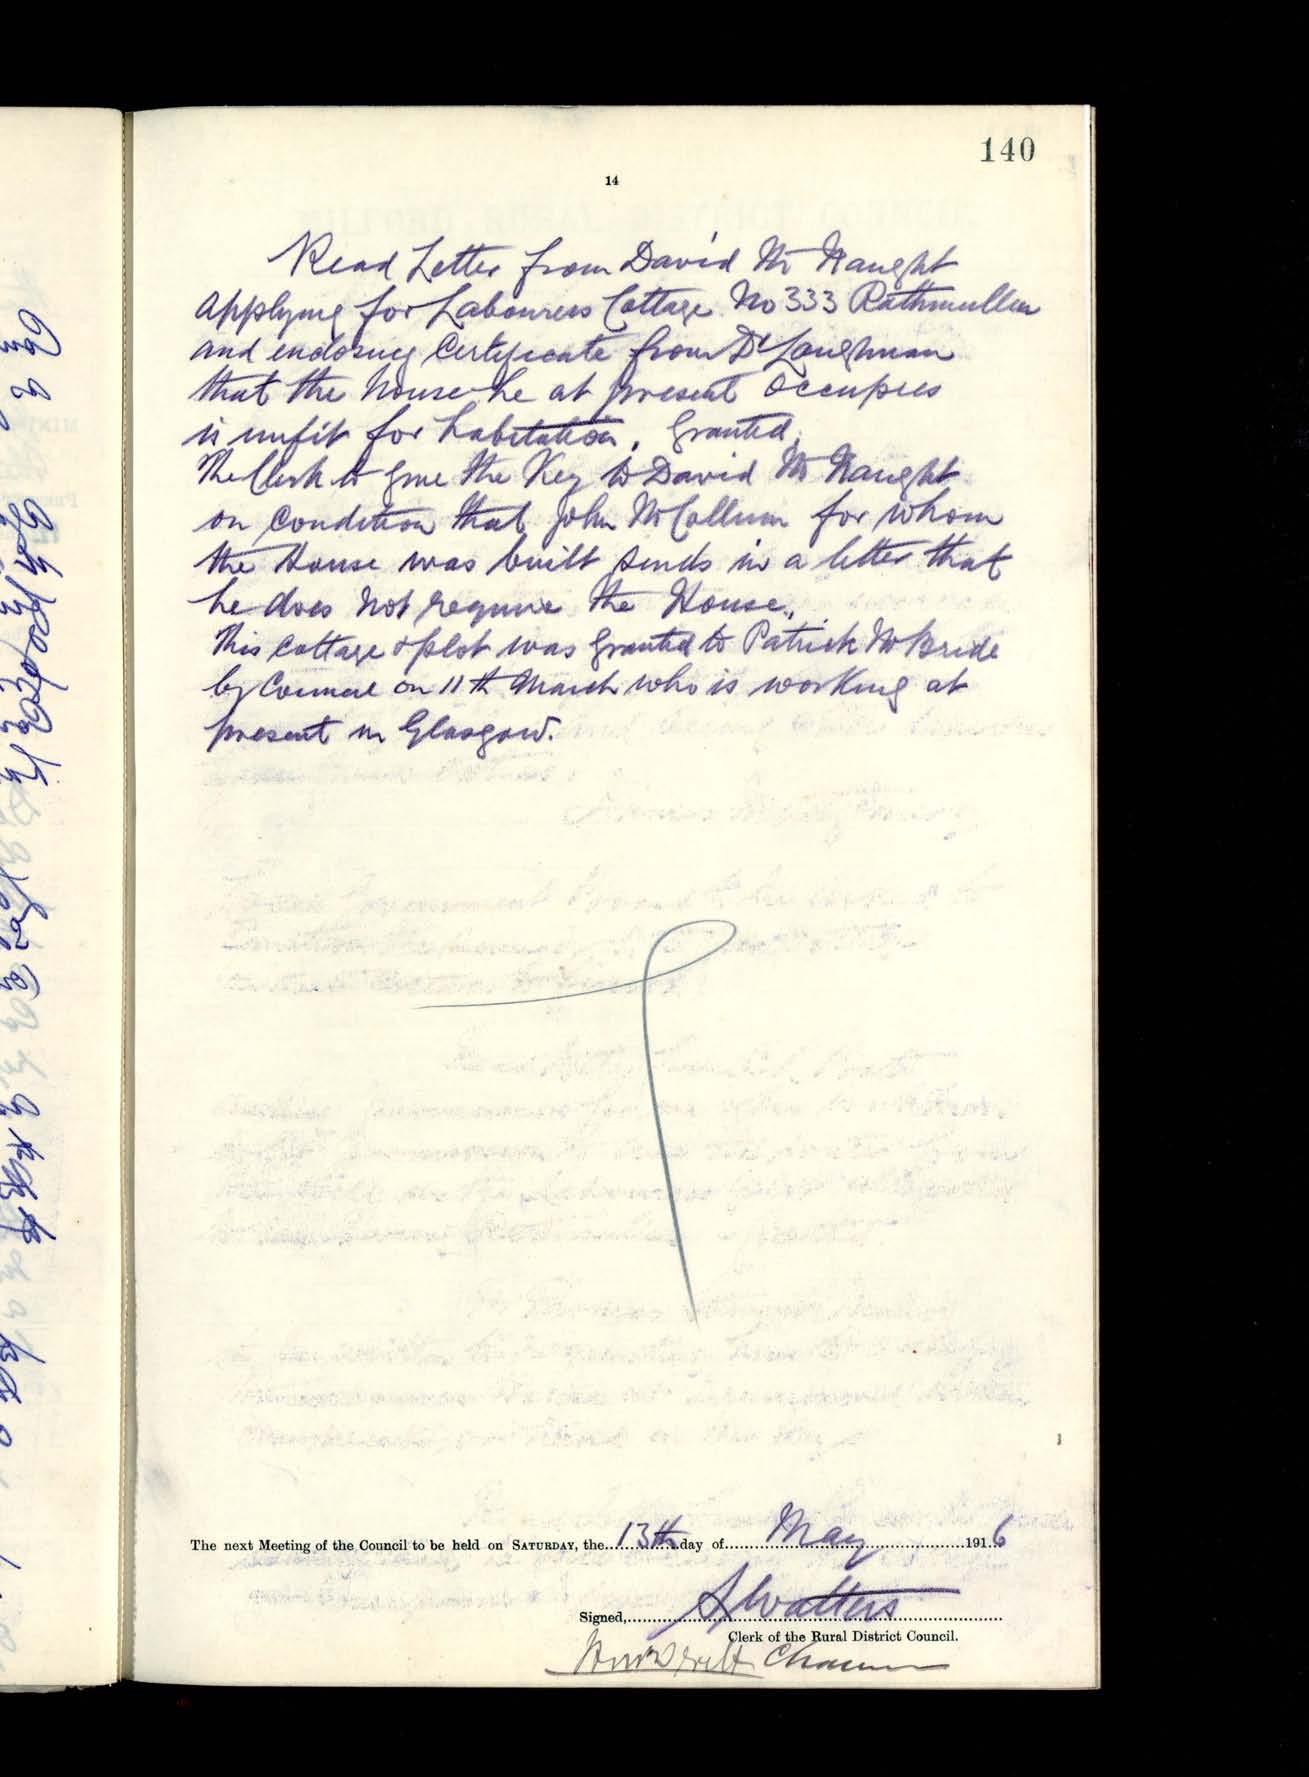 140
14
Read Letter from David Mc Naught
applying for Labourers Cottage No 333 Rathmullan
and enclosing Certificate from Dr Loughman
that the house he at present occupies
is unfit for habitation. Granted.
The Clerk to give the Key to David Mc Naught
on condition that John McCollum for whom
the House was built sends in a letter that
he does not require the House.
This cottage & plot was granted to Patrick McBride
by Council on 11th March who is working at
present in Glasgow.
The next Meeting of the Council to be held on SATURDAY, the 13th day of May 1916
Signed, S Watters
Clerk of the Rural District Council.